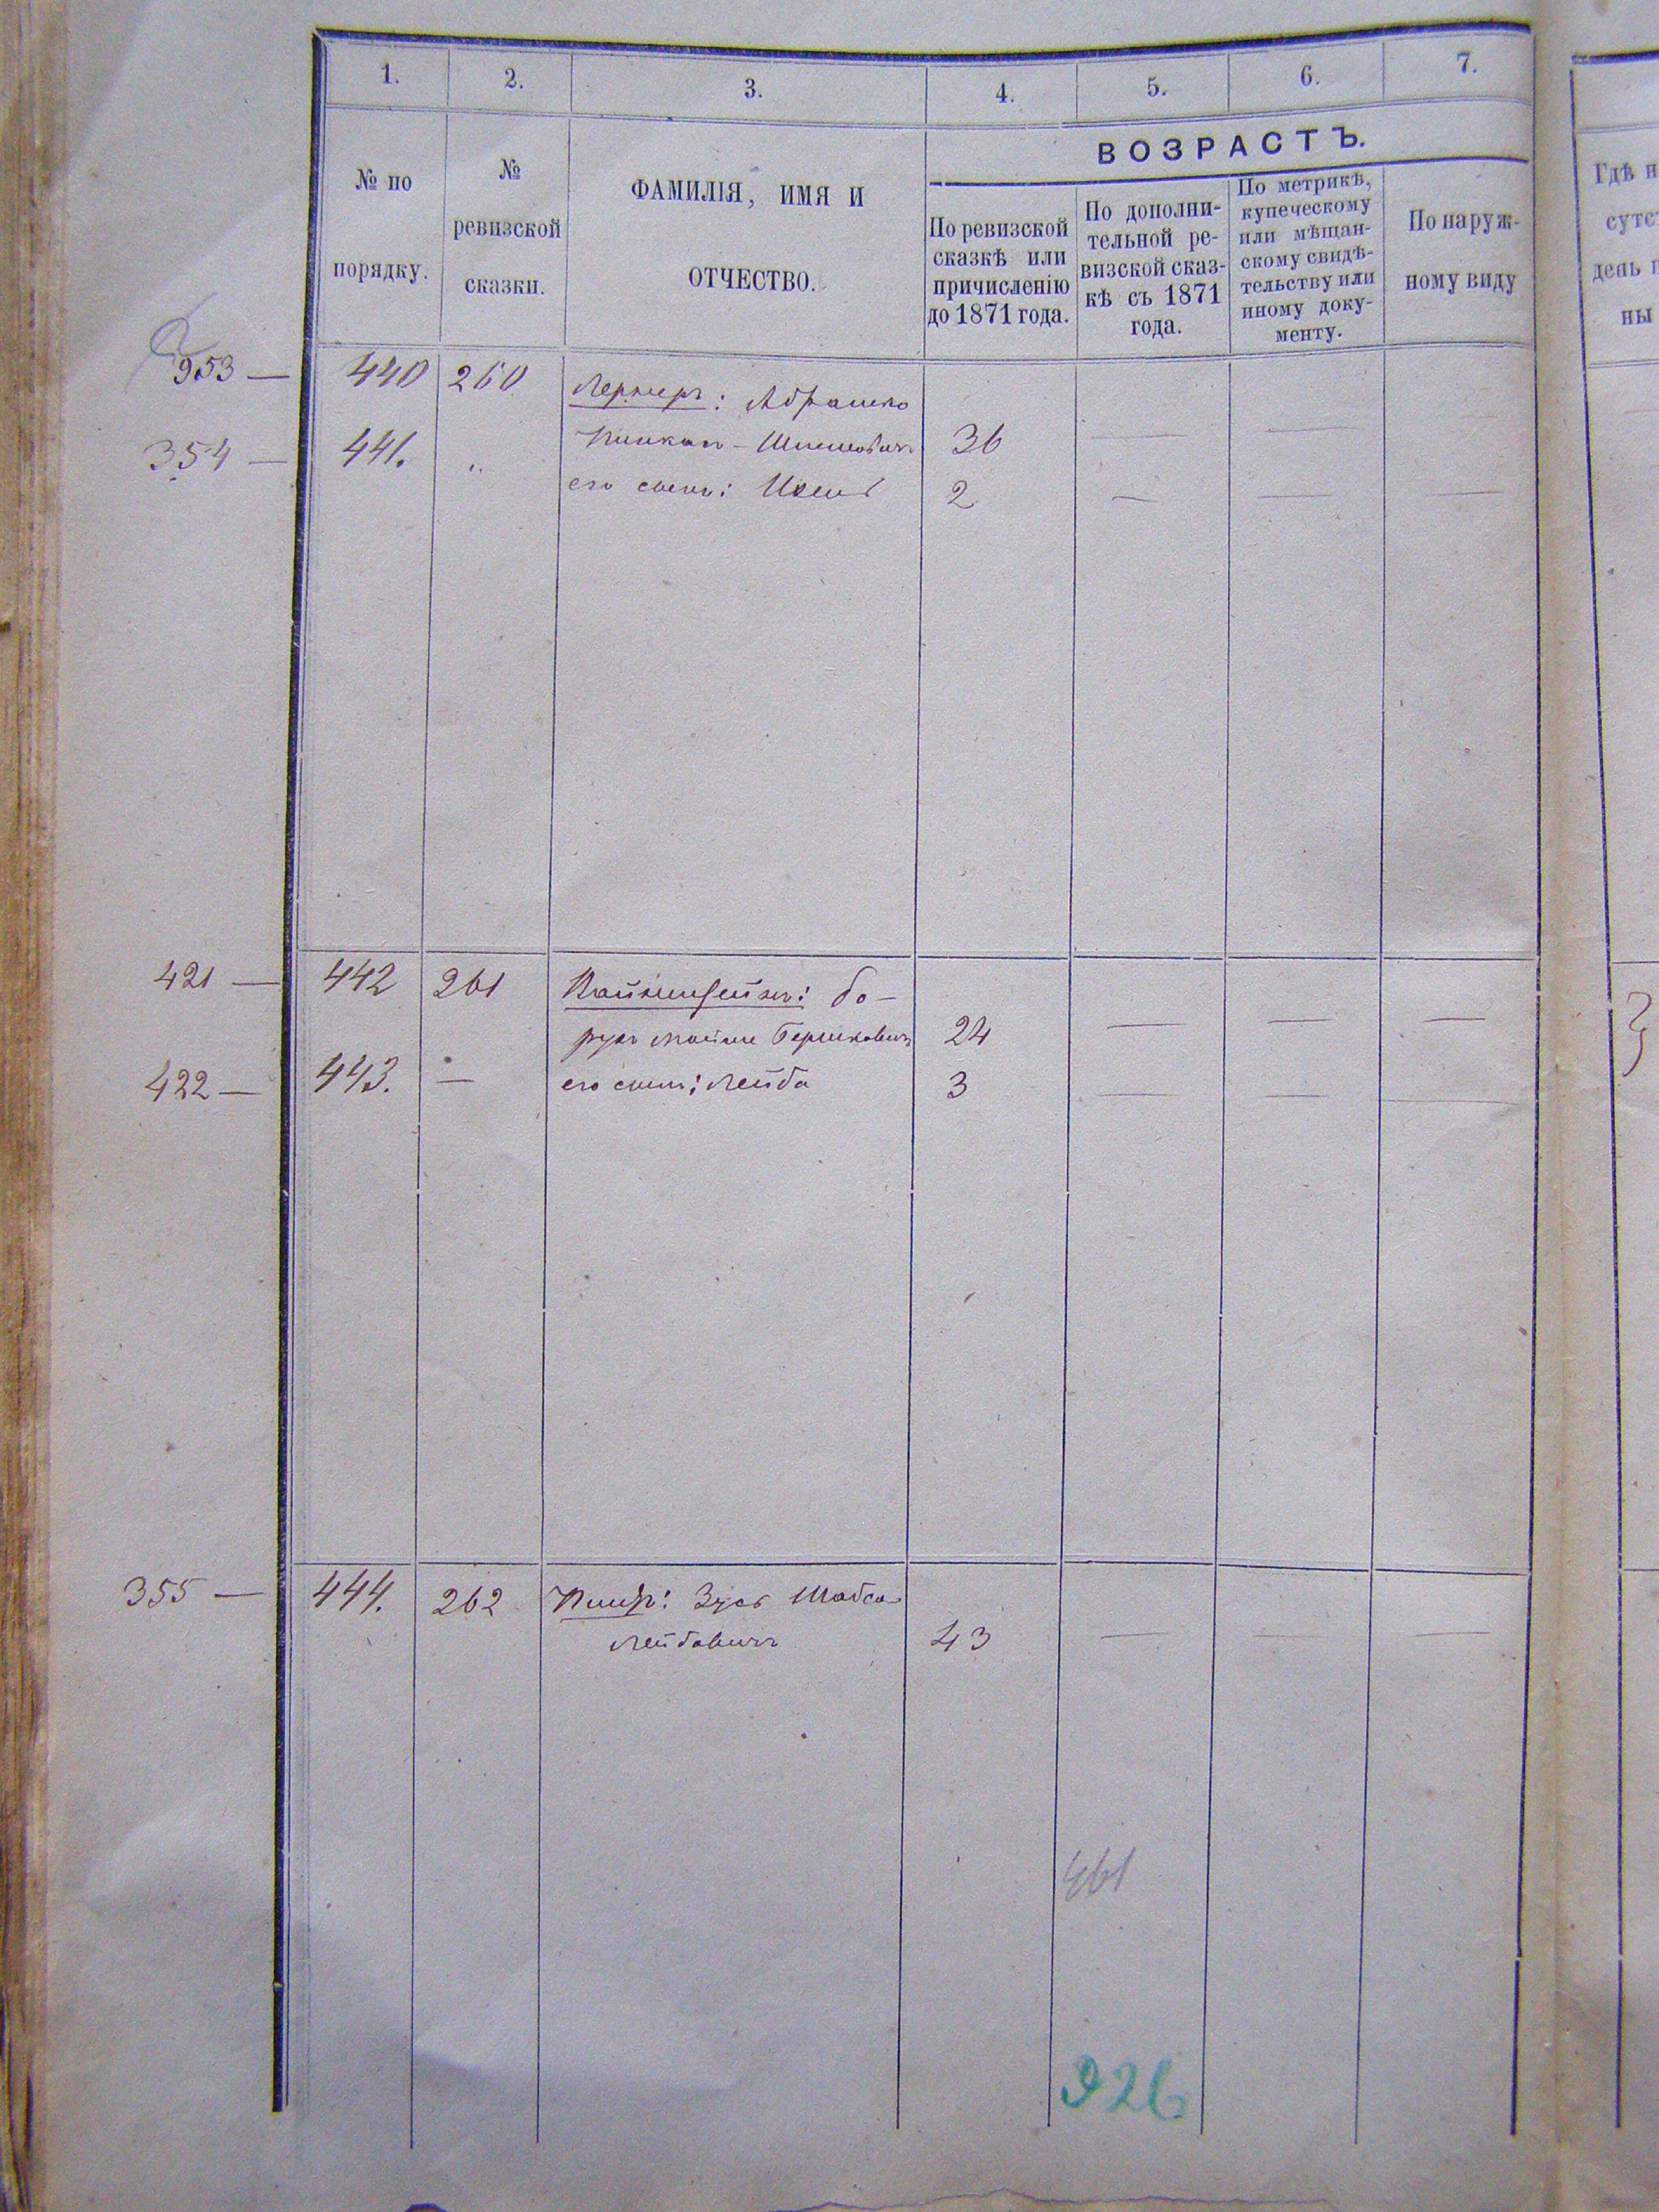 1. 2. 3. 4. 5. 6. 7.
№ по
порядку.
№
ревизской
сказки.
ФАМИЛІЯ, ИМЯ И
ОТЧЕСТВО.
ВОЗРАСТЪ.
По ревизской
сказкѣ или
причисленію
до 1871 года.
По дополни-
тельной ре-
визской сказ-
кѣ съ 1871
года.
По метрикѣ,
купеческому
или мѣщан-
скому свидѣ-
тельству или
иному доку-
менту.
По наруж-
ному виду
Гдѣ н
сутс
день п
ны
353 — 440 260 Лернеръ: Абрамко
354 — 441. „ Пинкас - Шмулевичъ 36 — —
его сынъ: 2 — — —
421 — 442 261 Вайнштейнъ: Бо-
рухъ Мойше Берковичъ 24 — — —
422 — 443. — его сынъ: Лейба 3 — — —
355 — 444. 262 Зусь Шабса
Лейбовичъ 43 — — —
461
926